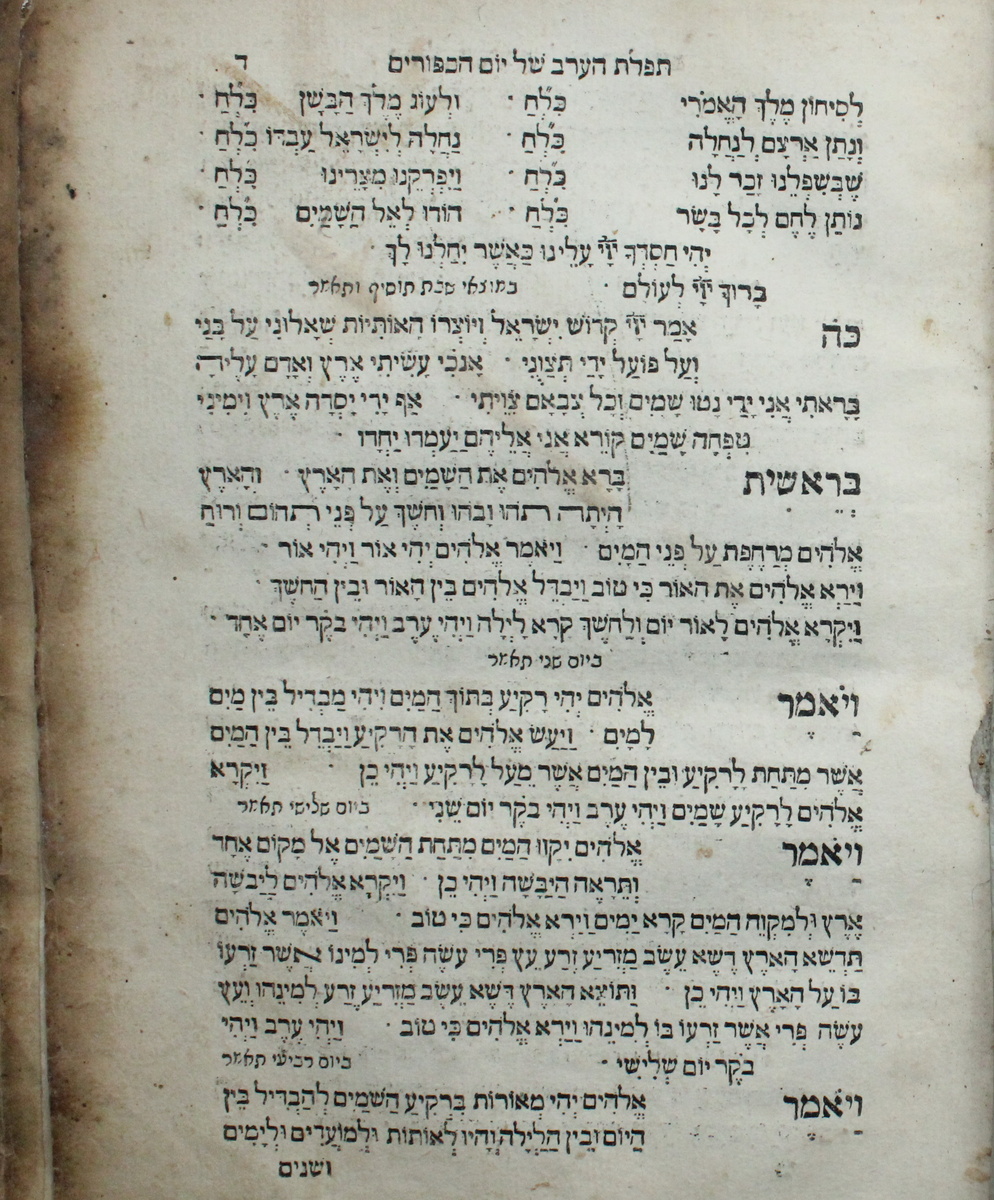 תפלת הערב של יום הכפורים ד
לְסִיחוֹן מֶלֶךְ הָאֱמֹרִי כִּלְ״חַ · וּלְעוֹג מֶלֶךְ הַבָּשָׁן כִּלְ״חַ ·
וְנָתַן אַרְצָם לְנַחֲלָה כִּלְ״חַ · נַחֲלָה לְיִשְׂרָאֵל עַבְדּוֹ כִּלְ״חַ ·
שֶׁבְּשִׁפְלֵנוּ זָכַר לָנוּ כִּלְ״חַ · וַיִּפְרְקֵנוּ מִצָּרֵינוּ כִּלְ״חַ ·
נוֹתֵן לֶחֶם לְכָל בָּשָׂר כִּלְ״חַ · הוֹדוּ לְאֵל הַשָּׁמַיִם כִּלְ״חַ ·
יְהִי חַסְדְּךָ יְיָ עָלֵינוּ כַּאֲשֶׁר יִחַלְנוּ לָךְ ·
בָּרוּךְ יְיָ לְעוֹלָם · במוצאי שבת תוסיף ותאמר
כֹּה אָמַר יְיָ קְדוֹשׁ יִשְׂרָאֵל וְיוֹצְרוֹ הָאוֹתִיּוֹת שְׁאָלוּנִי עַל בָּנַי
וְעַל פּוֹעַל יָדַי תְּצַוֻּנִי · אָנֹכִי עָשִׂיתִי אֶרֶץ וְאָדָם עָלֶיהָ
בָּרָאתִי אֲנִי יָדַי נָטוּ שָׁמַיִם וְכָל צְבָאָם צִוֵּיתִי · אַף יָדִי יָסְדָה אֶרֶץ וִימִינִי
טִפְּחָה שָׁמַיִם קוֹרֵא אֲנִי אֲלֵיהֶם יַעַמְדוּ יַחְדָּו ·
בְּרֵאשִׁית בָּרָא אֱלֹהִים אֶת הַשָּׁמַיִם וְאֶת הָאָרֶץ · וְהָאָרֶץ
הָיְתָה תֹהוּ וָבֹהוּ וְחֹשֶׁךְ עַל פְּנֵי תְהוֹם וְרוּחַ
אֱלֹהִים מְרַחֶפֶת עַל פְּנֵי הַמָּיִם · וַיֹּאמֶר אֱלֹהִים יְהִי אוֹר וַיְהִי אוֹר ·
וַיַּרְא אֱלֹהִים אֶת הָאוֹר כִּי טוֹב וַיַּבְדֵּל אֱלֹהִים בֵּין הָאוֹר וּבֵין הַחֹשֶׁךְ
וַיִּקְרָא אֱלֹהִים לָאוֹר יוֹם וְלַחֹשֶׁךְ קָרָא לָיְלָה וַיְהִי עֶרֶב וַיְהִי בֹקֶר יוֹם אֶחָד ·
ביום שני תאמר
וַיֹּאמֶר אֱלֹהִים יְהִי רָקִיעַ בְּתוֹךְ הַמָּיִם וִיהִי מַבְדִּיל בֵּין מַיִם
לָמָיִם · וַיַּעַשׂ אֱלֹהִים אֶת הָרָקִיעַ וַיַּבְדֵּל בֵּין הַמַּיִם
אֲשֶׁר מִתַּחַת לָרָקִיעַ וּבֵין הַמַּיִם אֲשֶׁר מֵעַל לָרָקִיעַ וַיְהִי כֵן · וַיִּקְרָא
אֱלֹהִים לָרָקִיעַ שָׁמָיִם וַיְהִי עֶרֶב וַיְהִי בֹקֶר יוֹם שֵׁנִי · ביום שלישי תאמר
וַיֹּאמֶר אֱלֹהִים יִקָּווּ הַמַּיִם מִתַּחַת הַשָּׁמַיִם אֶל מָקוֹם אֶחָד
וְתֵרָאֶה הַיַּבָּשָׁה וַיְהִי כֵן · וַיִּקְרָא אֱלֹהִים לַיַּבָּשָׁה
אֶרֶץ וּלְמִקְוֵה הַמַּיִם קָרָא יַמִּים וַיַּרְא אֱלֹהִים כִּי טוֹב · וַיֹּאמֶר אֱלֹהִים
תַּדְשֵׁא הָאָרֶץ דֶּשֶׁא עֵשֶׂב מַזְרִיעַ זֶרַע עֵץ פְּרִי עֹשֶׂה פְּרִי לְמִינוֹ אֲשֶׁר זַרְעוֹ
בוֹ עַל הָאָרֶץ וַיְהִי כֵן · וַתּוֹצֵא הָאָרֶץ דֶּשֶׁא עֵשֶׂב מַזְרִיעַ זֶרַע לְמִינֵהוּ וְעֵץ
עֹשֶׂה פְּרִי אֲשֶׁר זַרְעוֹ בוֹ לְמִינֵהוּ וַיַּרְא אֱלֹהִים כִּי טוֹב · וַיְהִי עֶרֶב וַיְהִי
בֹקֶר יוֹם שְׁלִישִׁי · ביום רביעי תאמר
וַיֹּאמֶר אֱלֹהִים יְהִי מְאוֹרוֹת בִּרְקִיעַ הַשָּׁמַיִם לְהַבְדִּיל בֵּין
הַיּוֹם וּבֵין הַלַּיְלָה וְהָיוּ לְאוֹתוֹת וּלְמוֹעֲדִים וּלְיָמִים
ושנים